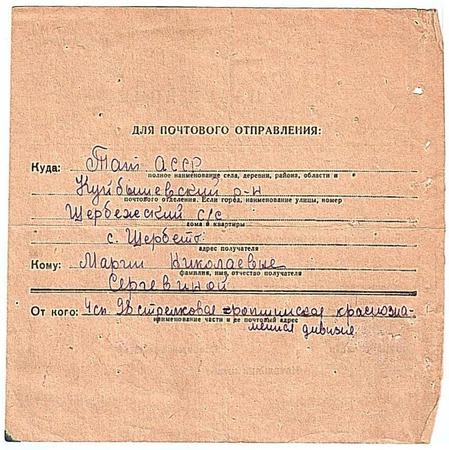 ДЛЯ ПОЧТОВОГО ОТПРАВЛЕНИЯ:
Куда: Тат АССР
полное наименование села, деревни, района, области и
Куйбышевский р-н
почтового отделения. Если город, наименование улицы, номер
Щербежский с/с
дома и квартиры
с. Щербеть
адрес получателя
Кому: Марии Николаевне
фамилия, имя, отчество получателя
От кого: 4сп. 98 стрелковая кропшинская краснозна-
наименование части и ее почтовый адрес
менная дивизия